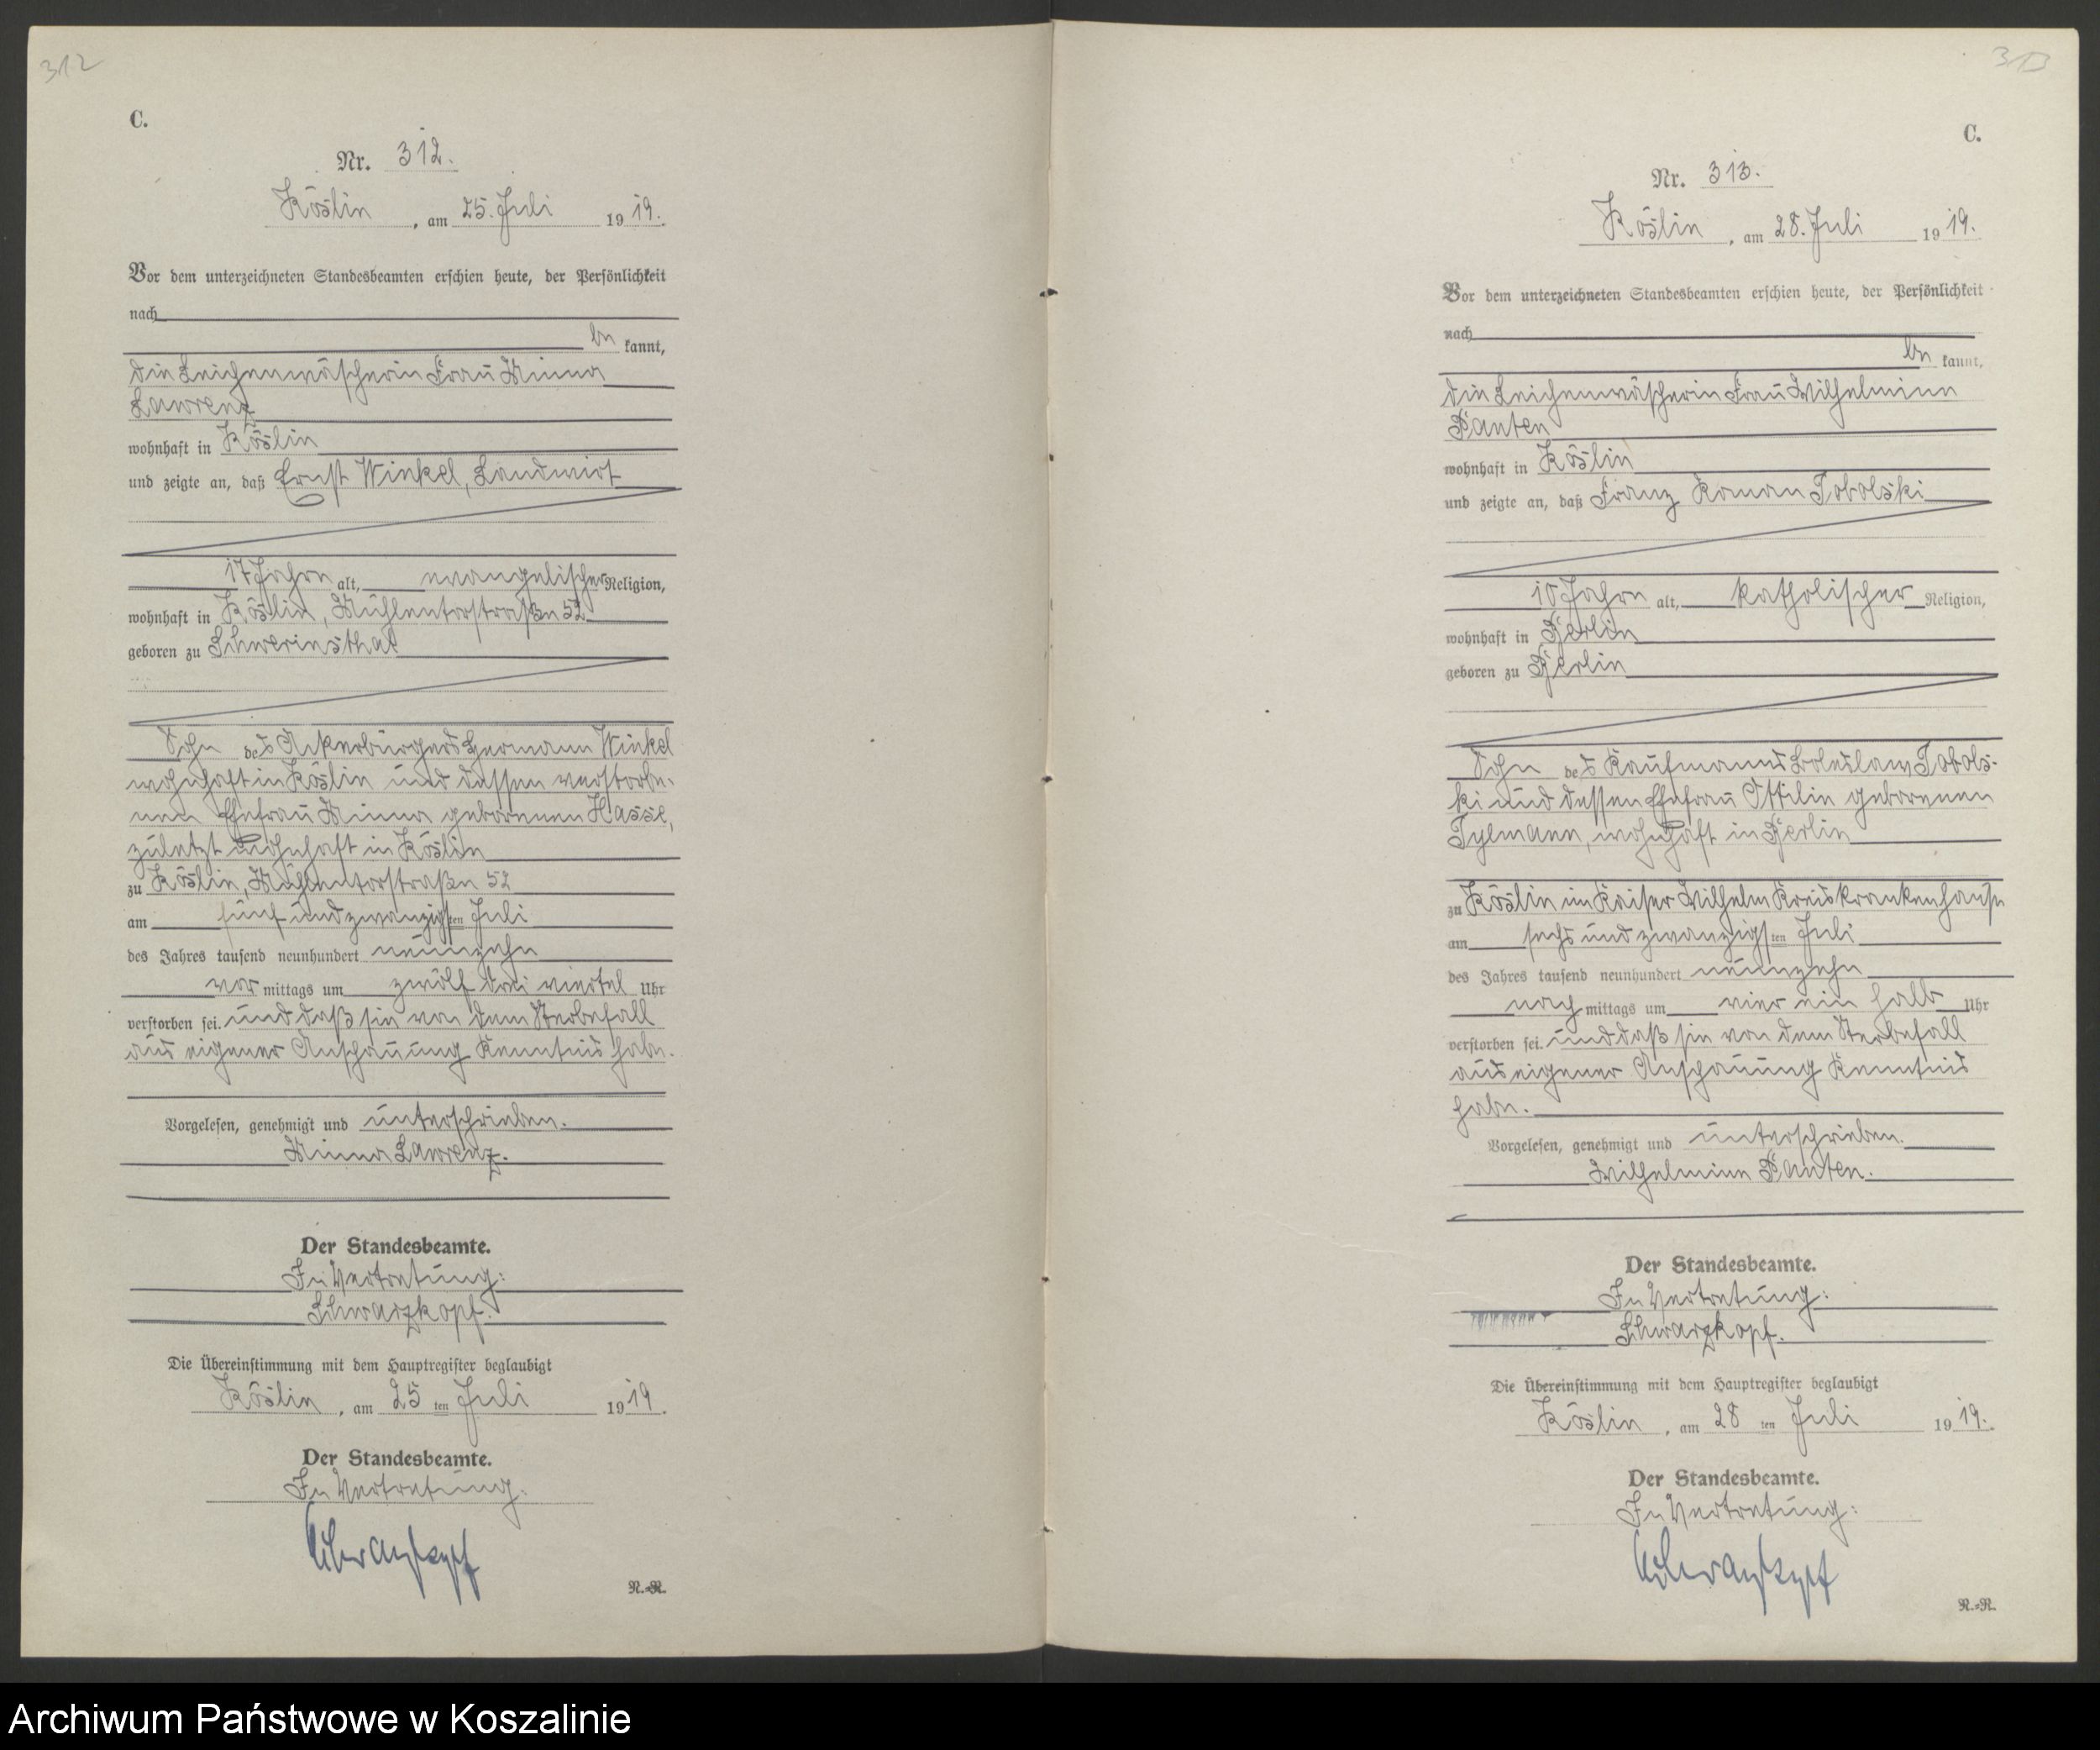 312
C.
Nr. 312.
Köslin, am 25. Juli 1919.
Vor dem unterzeichneten Standesbeamten erschien heute, der Persönlichkeit
nach
be kannt,
die Leichenwäscherin Frau Minna
Lawrenz
wohnhaft in Köslin
und zeigte an, daß Ernst Winkel, Landwirt
17 Jahre alt, evangelischer Religion,
wohnhaft in Köslin, Mühlentorstraße 52
geboren zu Schwerinsthal
Sohn des Ackerbürgers Hermann Winkel
wohnhaft in Köslin und dessen verstorbe-
nen Ehefrau Minna geborenen Hasse,
zuletzt wohnhaft in Köslin
zu Köslin, Mühlentorstraße 52
am fünf und zwanzigsten Juli
des Jahres tausend neunhundert neunzehn
vor mittags um zwölf drei viertel Uhr
verstorben sei. und daß sie von dem Sterbefall
aus eigener Anschauung Kenntnis habe.
Vorgelesen, genehmigt und unterschrieben.
Minna Lawrenz.
Der Standesbeamte.
In Vertretung:
Schwarzkopf.
Die Übereinstimmung mit dem Hauptregister beglaubigt
Köslin, am 25 ten Juli 1919.
Der Standesbeamte.
In Vertretung.
Schwarzkopf
R.-R.
313
C.
Nr. 313.
Köslin, am 28. Juli 1919.
Vor dem unterzeichneten Standesbeamten erschien heute, der Persönlichkeit
nach
be kannt,
die Leichenwäscherin Frau Wilhelmine
Panten
wohnhaft in Köslin
und zeigte an, daß Franz Roman Tobolski
10 Jahre alt, katholischer Religion,
wohnhaft in Berlin
geboren zu Berlin
Sohn des Kaufmanns Boleslaw Tobols-
ki und dessen Ehefrau Ottilie geborenen
Tylmann, wohnhaft in Berlin
zu Köslin im Kaiser Wilhelm Kreiskrankenhause
am sechs und zwanzigsten Juli
des Jahres tausend neunhundert neunzehn
nach mittags um vier ein halb Uhr
verstorben sei. und daß sie von dem Sterbefall
aus eigener Anschauung Kenntnis
habe.
Vorgelesen, genehmigt und unterschrieben.
Wilhelmine Panten.
Der Standesbeamte.
In Vertretung:
Schwarzkopf.
Die Übereinstimmung mit dem Hauptregister beglaubigt
Köslin, am 28 ten Juli 1919.
Der Standesbeamte.
In Vertretung:
Schwarzkopf
R.-R.
Archiwum Państwowe w Koszalinie